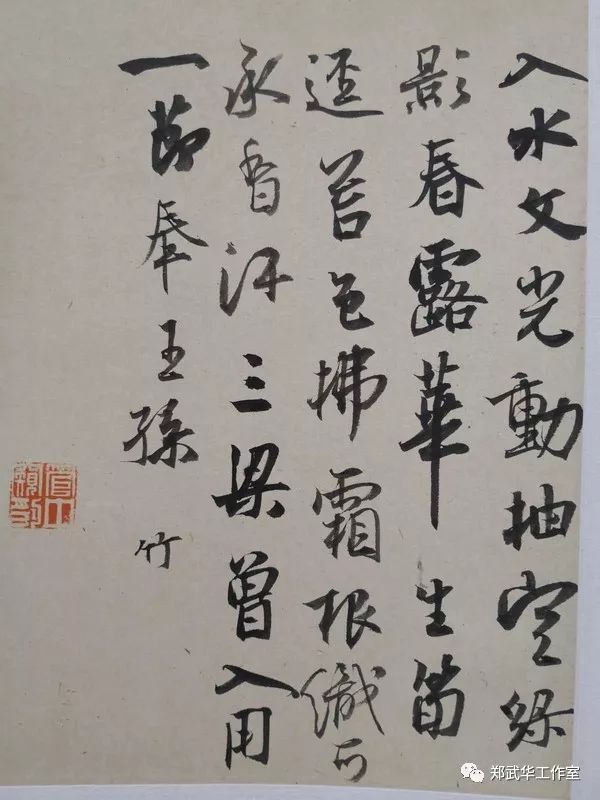 入水文光動抽空綠
影春露華生筍
逕苔色拂霜根織可
承香汗三梁曾入用
一節奉王孫 竹
郑武华工作室